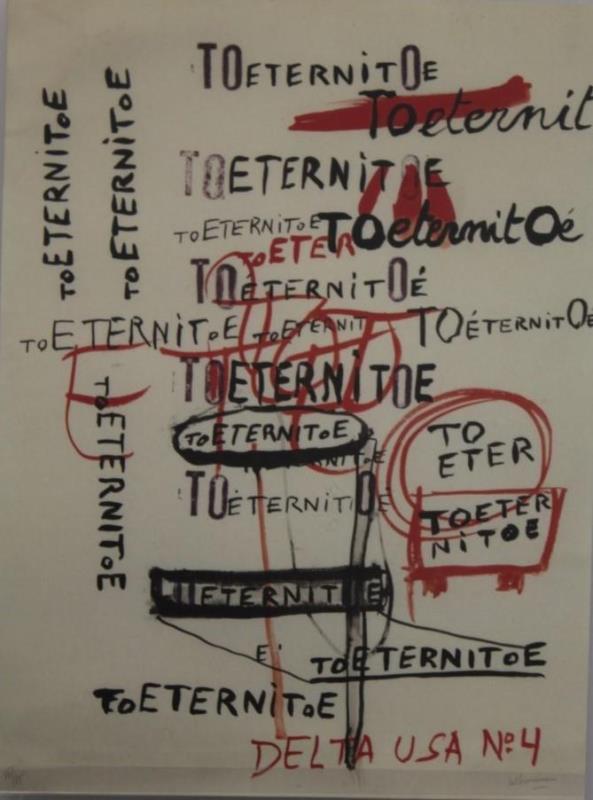 TOETERNITOE
TOeternit
TOETERNITOE
TOETERNITOE
TOETERNITOE
TOETERNITOE TOeternitOé
TOETER
TOÉTERNITOÉ
TOETERNITOE TOETERNIT TOÉTERNITOÉ
TOETERNITOE
TOETERNITOE
TOETERNITOE
TO
ETER
TOETER
NITOE
TOÉTERNITOÉ
ETERNIT
E'
TOETERNITOE
TOETERNITOE
DELTA USA Nº4